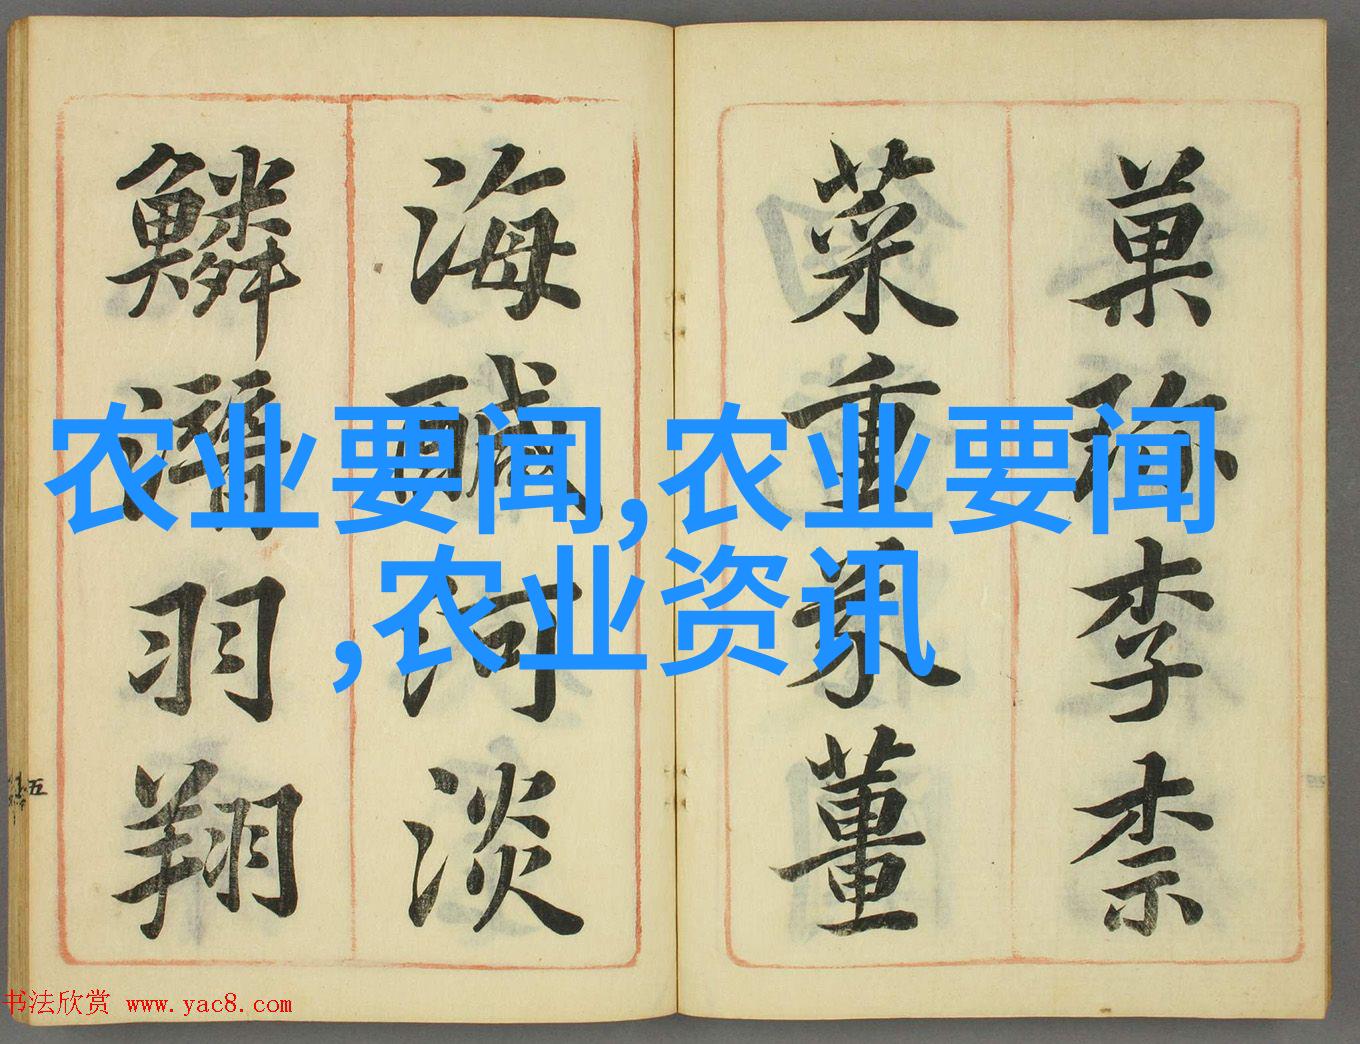 菓珍李柰
菜重芥薑
海醎河淡
鱗潛羽翔
五
农业要闻,农业要闻
,农业资讯
书法欣赏 www.yac8.com